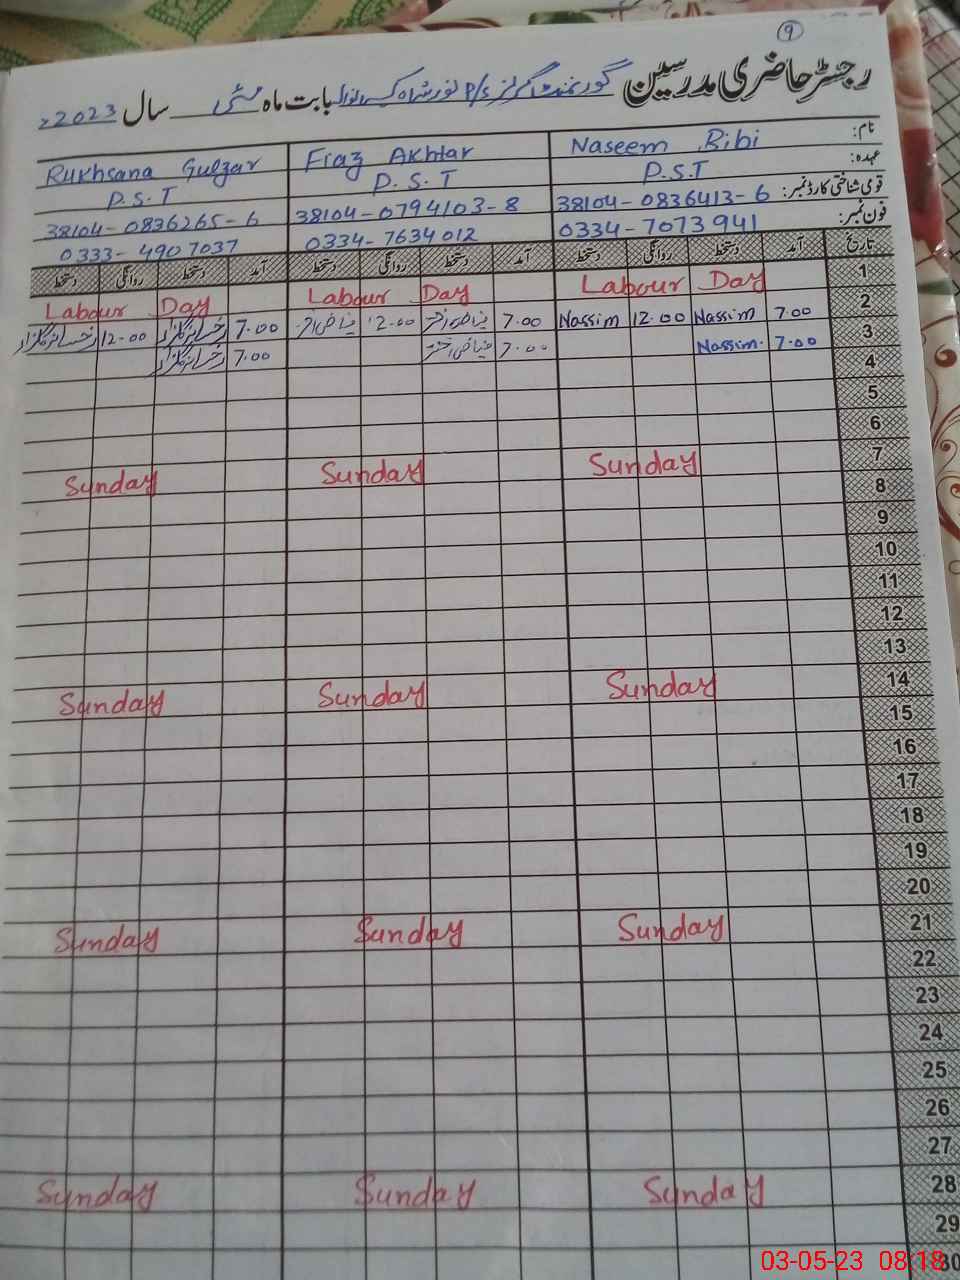 9
رجسٹر حاضری مدرسین گورنمنٹ گرلز P/S نور شاہ بابت ماہ مئی سال 2023ء
نام: Naseem Bibi Fiaz Akhtar Rukhsana Gulzar
عہدہ: P.S.T P.S.T P.S.T
قومی شناختی کارڈ نمبر: 38104-0836413-6 38104-0794103-8 38104-0836265-6
فون نمبر: 0334-7073941 0334-7634012 0333-4907037
تاریخ آمد دستخط روانگی دستخط آمد دستخط روانگی دستخط آمد دستخط روانگی دستخط
1 Labour Day Labour Day Labour Day
2 7.00 Nassim 12.00 Nassim 7.00 فیاض اختر 12.00 فیاض اختر 7.00 رخسانہ گلزار 12.00 رخسانہ گلزار
3 7.00 Nassim. 7.00 فیاض اختر 7.00 رخسانہ گلزار
4
5
6
7 Sunday Sunday Sunday
8
9
10
11
12
13
14 Sunday Sunday Sunday
15
16
17
18
19
20
21 Sunday Sunday Sunday
22
23
24
25
26
27
28 Sunday Sunday Sunday
29
30
03-05-23 08:18